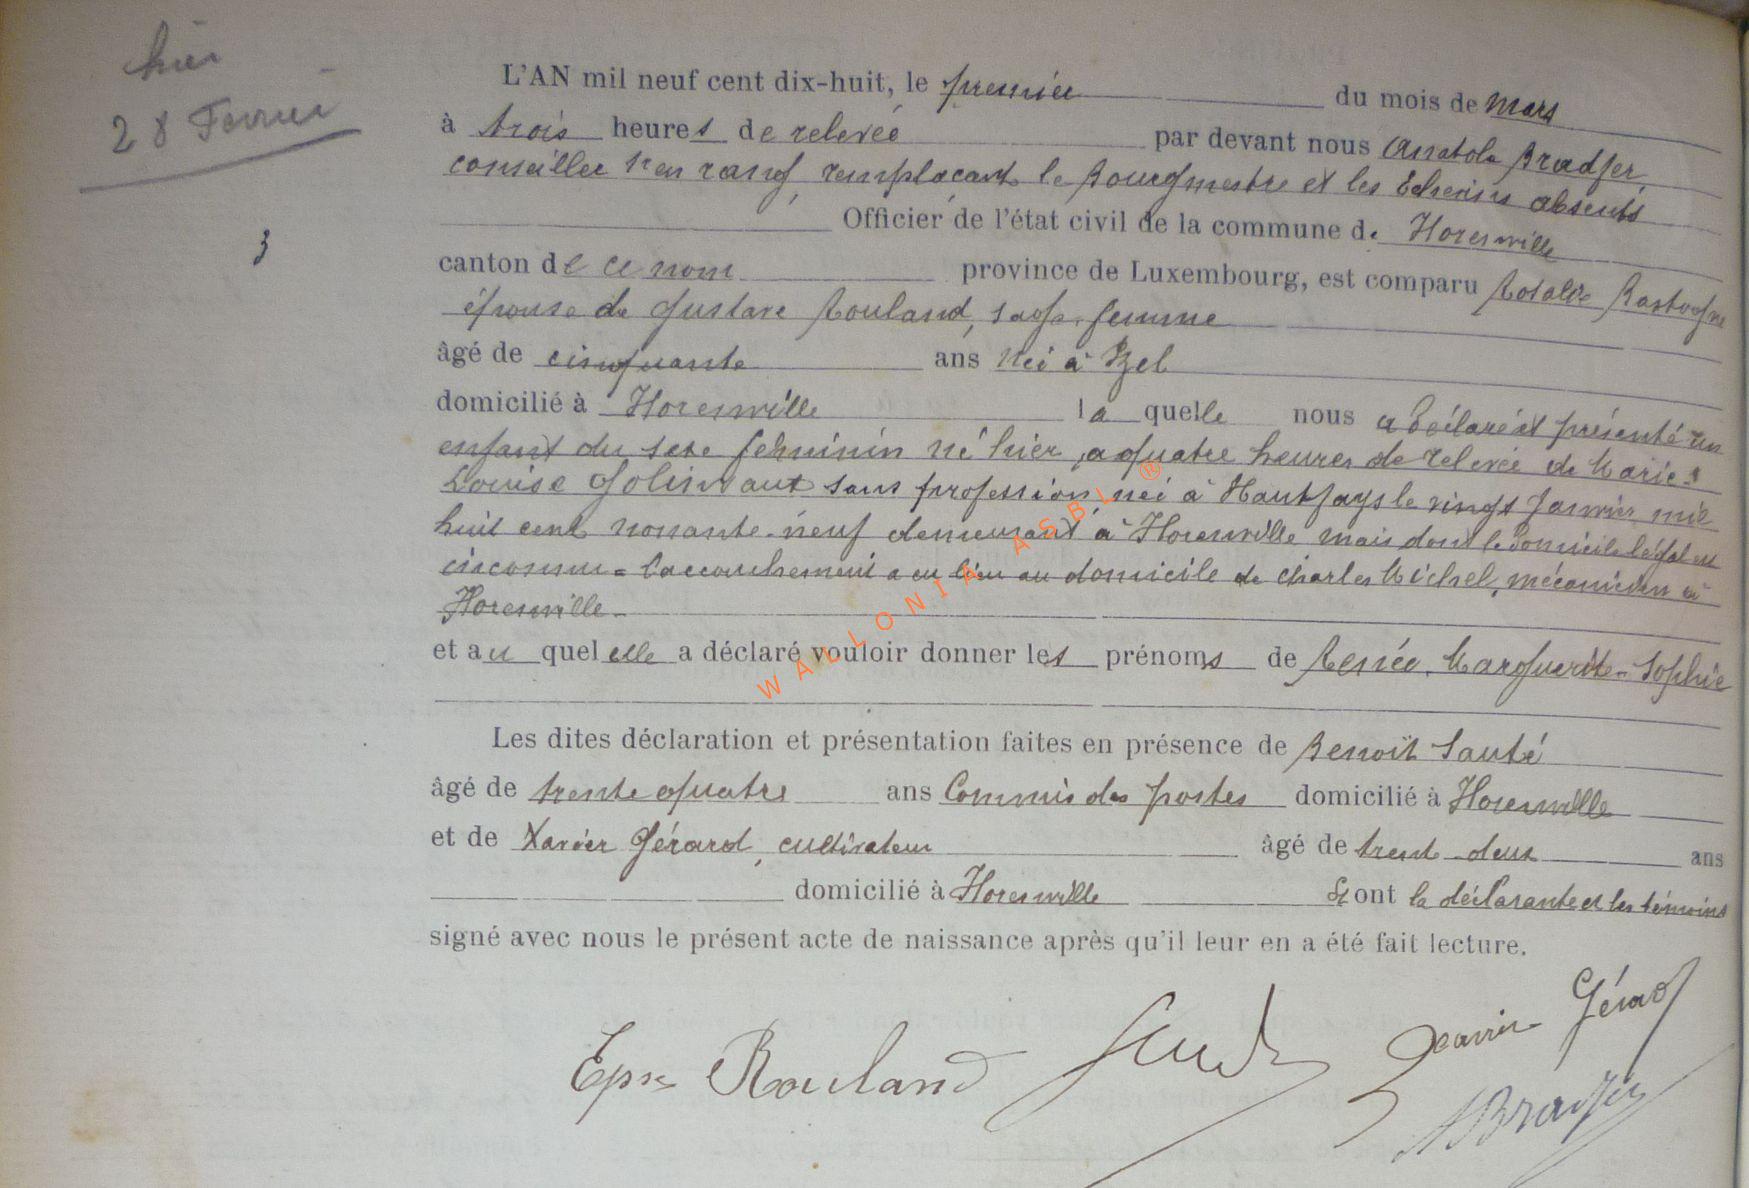 hier
28 Fevrier
3
L'AN mil neuf cent dix-huit, le premier du mois de Mars
à trois heures de relevée par devant nous Anatole Bradfer
conseiller 1er en rang, remplaçant le Bourgmestre et les Echevins absents
Officier de l'état civil de la commune de Florenville
canton de ce nom province de Luxembourg, est comparu Rosalie Bastogne
épouse de Gustave Rouland, sage-femme
âgé de cinquante ans née à Izel
domicilié à Florenville laquelle nous a déclaré et présenté un
enfant du sexe féminin né hier, à quatre heures de relevée de Marie-
Louise Golinvaux sans profession née à Hautfays le vingt Janvier mil
huit cent nonante-neuf demeurant à Florenville mais dont le domicile légal est
inconnu = l'accouchement a eu lieu au domicile de Charles Michel, mécanicien à
Florenville
et auquel elle a déclaré vouloir donner les prénoms de Renée Marguerite-Sophie
Les dites déclaration et présentation faites en présence de Benoît Sauté
âgé de trente quatre ans Commis des postes domicilié à Florenville
et de Xavier Gérard, cultivateur âgé de trent-deux ans
domicilié à Florenville & ont la déclarante et les témoins
signé avec nous le présent acte de naissance après qu'il leur en a été fait lecture.
Epse Rouland Xavier Gérard
ABradfer
WALLONIA ASBL ®